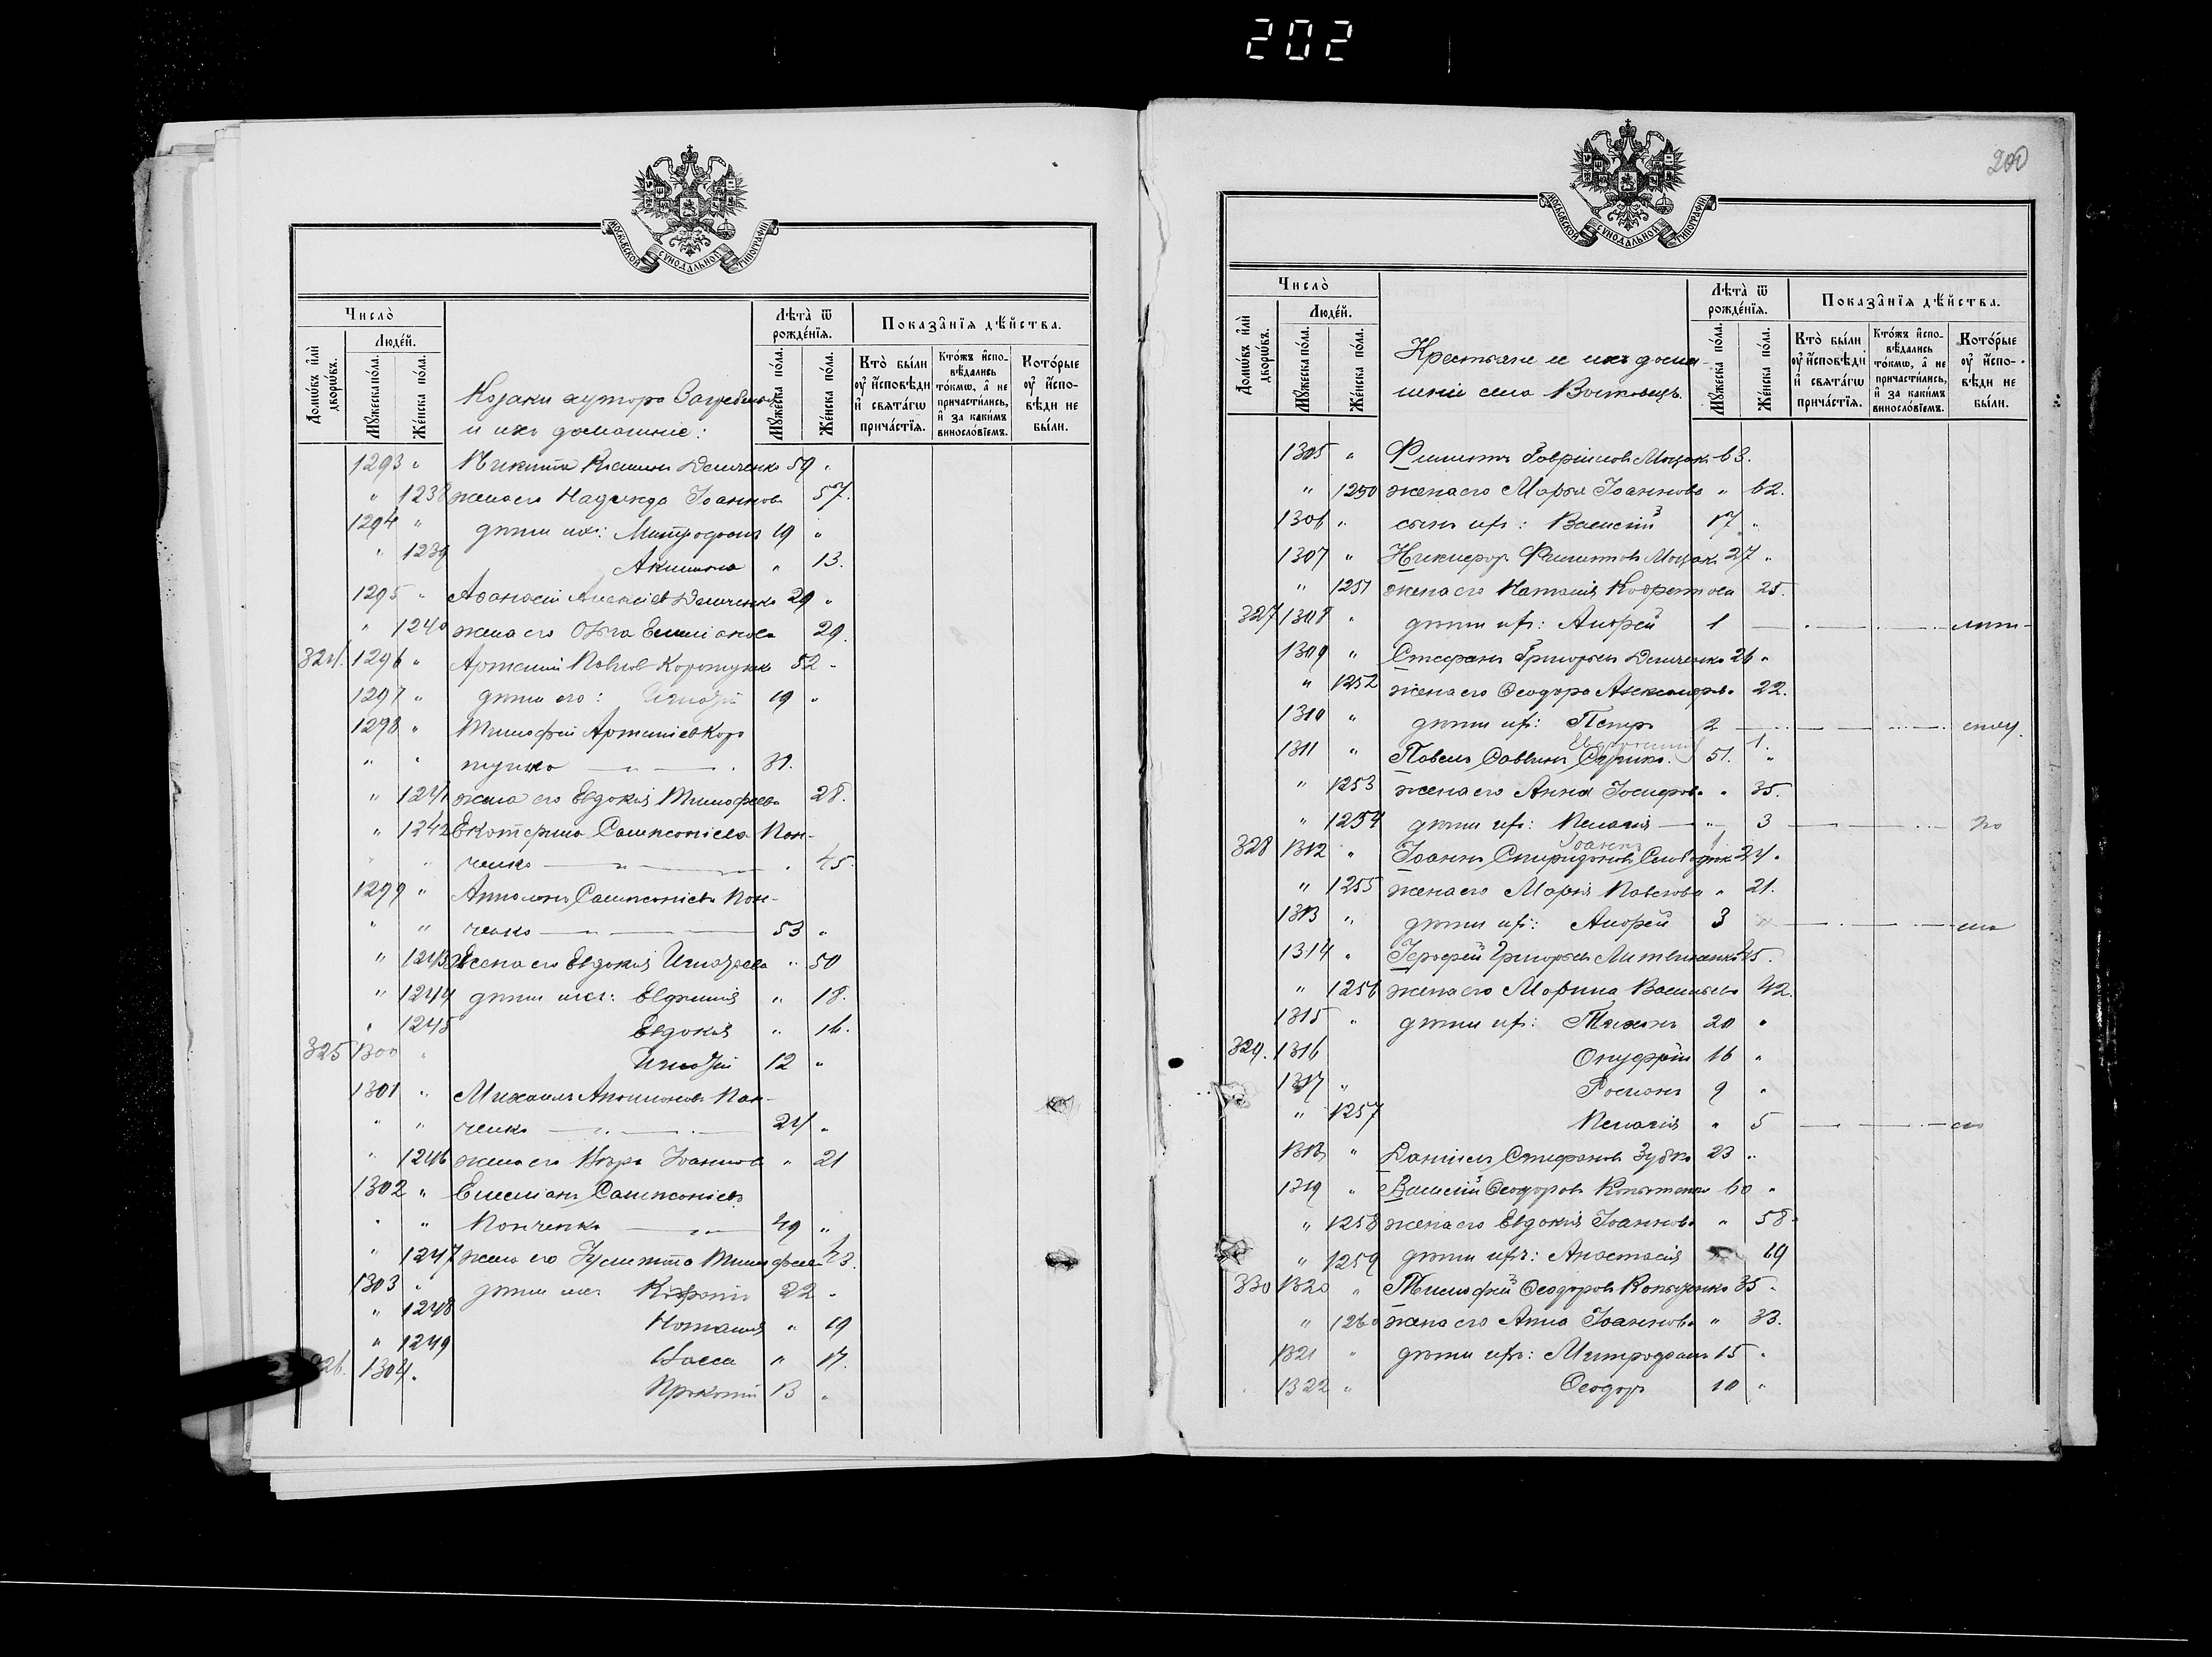 202
МОСКОВСКОЙ СУНОДАЛЬНОЙ ТИПОГРАФІИ
Число̀
Домѡ́въ и҆лѝ дворѡ́въ.
Люде́й.
Мꙋ́жеска по́ла.
Же́нска по́ла.
Лѣ́та ѿ рожде́нїѧ.
Мꙋ́жеска по́ла.
Же́нска по́ла.
Показа̑нїѧ дѣ́йства.
Кто̀ бы́ли ᲂу҆ и҆́сповѣди и҆ свѧта́гѡ прича́стїѧ.
Кто́жъ и҆спо-вѣ́дались то́кмѡ, а҆ не причасти́лись, и҆ за каки́мъ виносло́вїемъ.
Кото́рые ᲂу҆ и҆́спо-вѣди не бы́ли.
Козаки хутора
и ихъ домашніе:
1293 " Никита Демченко 59 "
" 1238 жена его Надежда Іоаннова 57.
1294 " дѣти их: Митрофанъ 19 "
" 1239 Акилина " 13.
1295 " Аѳанасій Алексіев Демченко 29 "
" 1240 жена его Ольга Емиліанова 29.
324. 1296 " Артемій Павлов Коротушко 52 "
1297 " дѣти его: Игнатій 19 "
1298 " Тимофей Артеміев Коро
" " тушко 31.
" 1241 жена его Евдокія Тимофеева 28.
" 1242 Екатерина Сампсоніева Пон-
" " ченко 45.
1299 " Апполонъ Сампсоніевъ Пон-
" " ченко 53 "
" 1243 жена его Евдокія Игнатьева " 50
" 1244 дѣти ихъ: Евфимія " 18.
" 1245 Евдокія " 16.
325 1300 " Игнатій 12 "
1301 " Михаилъ Аполлоновъ Пон-
" " ченко 24 "
" 1246 жена его Іоаннова " 21
1302 " Емиліанъ Сампсоніевъ
" " Понченко 49 "
" 1247 жена его Іулитта Тимофеева 43.
1303 " дѣти ихъ 22 "
" 1248 Наталія " 19
" 1249 " 17.
326. 1304. Прокопій 13 "
200
МОСКОВСКОЙ СУНОДАЛЬНОЙ ТИПОГРАФІИ
Число̀
Домѡ́въ и҆лѝ дворѡ́въ.
Люде́й.
Мꙋ́жеска по́ла.
Же́нска по́ла.
Лѣ́та ѿ рожде́нїѧ.
Мꙋ́жеска по́ла.
Же́нска по́ла.
Показа̑нїѧ дѣ́йства.
Кто̀ бы́ли ᲂу҆ и҆́сповѣди и҆ свѧта́гѡ прича́стїѧ.
Кто́жъ и҆спо-вѣ́дались то́кмѡ, а҆ не причасти́лись, и҆ за каки́мъ виносло́вїемъ.
Кото́рые ᲂу҆ и҆́спо-вѣди не бы́ли.
Крестьяне и ихъ дома-
шніе села
1305 " Филиппъ Гавріиловъ Моцак 63.
" 1250 жена его Марѳа Іоаннова " 62.
1306 " сынъ ихъ: Василій 17 "
1307 " Никифоръ Филипповъ Моцак 27 "
" 1251 жена его Наталія 25.
327 1308 " дѣти ихъ: Андрей 1
1309 " Стефанъ Григорьевъ Демченко 26 "
" 1252 жена его Ѳеодора Александров. 22.
1310 " дѣти ихъ: Петръ 2
1.
1311 " Павелъ Саввинъ 51. "
" 1253 жена его Анна Іосифова " 35.
" 1254 дѣти ихъ: Пелагія " 3
Іоаннъ 1
328 1312 " Іоаннъ Спиридоновъ 24 "
" 1255 жена его Марія Павлова " 21.
1313 " дѣти ихъ: Андрей 3
1314 " Іерофей Григорьевъ Литвиненко 45.
" 1256 жена его Марина Васильева 42.
1315 " дѣти ихъ: Тихонъ 20 "
329. 1316 Онуфрій 16 "
1317 " Романъ 9 "
" 1257 Пелагія " 5
1318 " Даніилъ Стефановъ Зубко 23 "
1319 " Василій Ѳеодоровъ 60 "
" 1258 жена его Евдокія Іоаннова " 58.
" 1259 дѣти ихъ: Анастасія 19
330 1320 " Тимофей Ѳеодоровъ 35.
" 1260 жена его Анна Іоаннова " 33.
1321 " дѣти ихъ: Митрофанъ 15 "
1322 " Ѳеодоръ 10 "